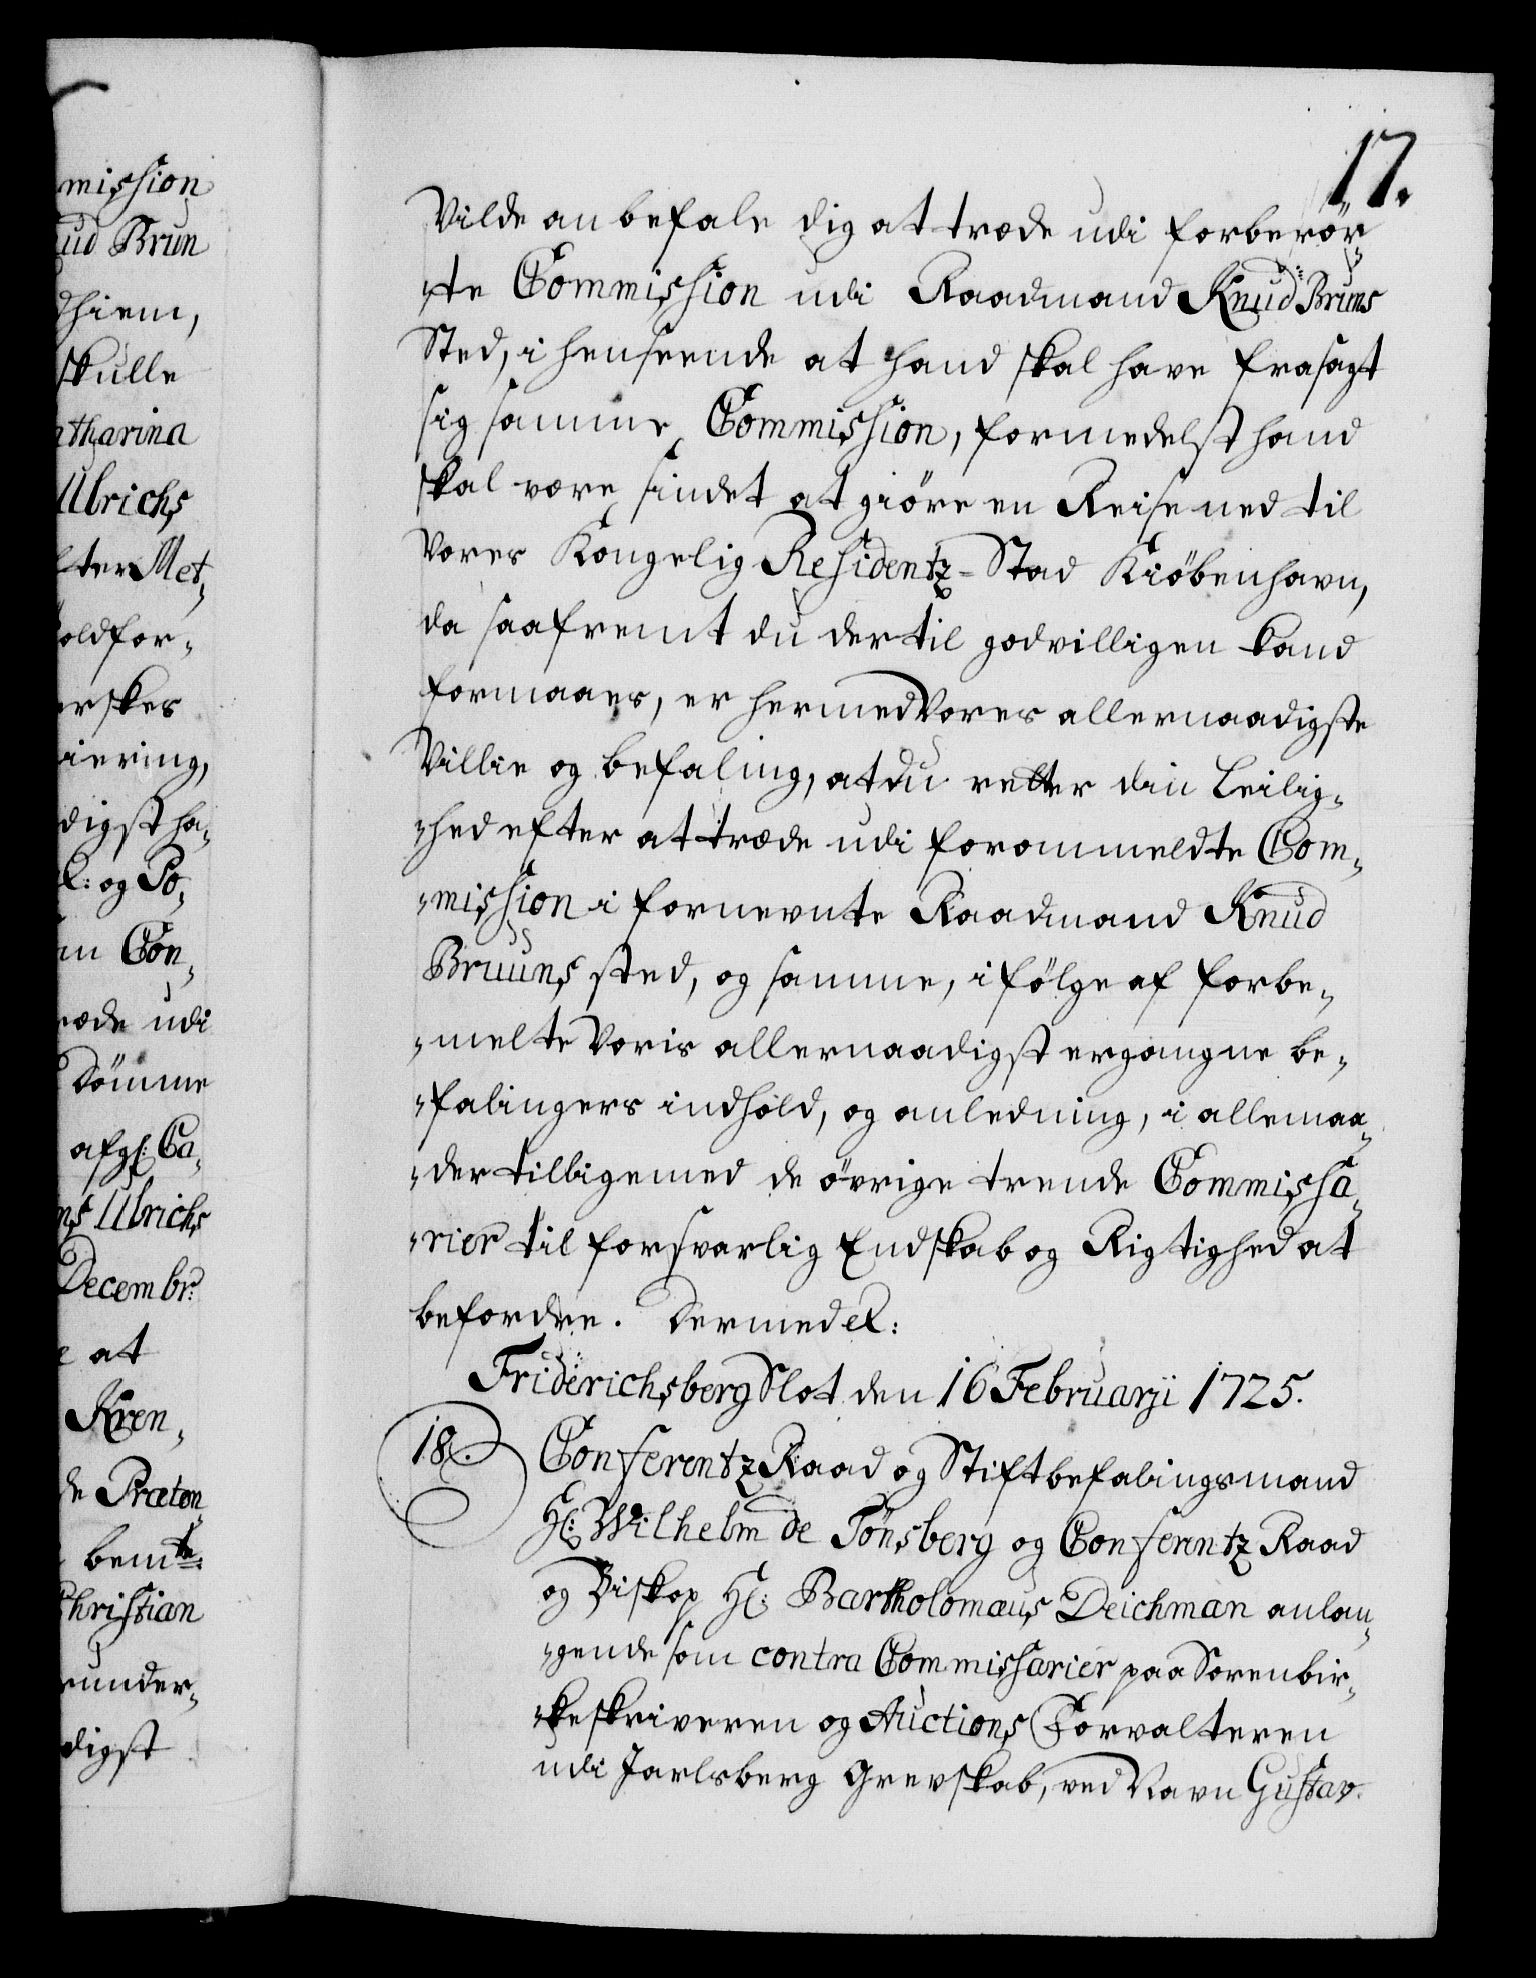 mission
ud Brun
dhiem,
skulle
atharina
Ulrichs
lter Met„
oldfor„
erskes
iering,
digst ha„
l: og Po„
en Con„
ræde udi
Dømme
afgl: Ca„
ns Ulrichs
Decembr:
e at
Kren„
de Præten„
bemte:
Christian
runder„
digst
17.
Vilde anbefale dig at træde udi forberør„
„te Commission udi Raadmand Knud Bruns
Sted, i henseende at hand skal have frasagt
sig samme Commission, formedelst hand
skal være sindet at giøre en Reise ned til
Vores Kongelig Residentz-Stad Kiøbenhavn,
da saafremt du der til godvilligen kand
formaaes, er hermed Vores allernaadigste
Villie og befaling, at du retter din Leilig„
„hed efter at træde udi forommeldte Com„
„mission i fornevnte Raadmand Knud
Bruuns sted, og samme, i følge af forbe„
„melte Voris allernaadigst ergangne be„
„falingers indhold, og anledning, i allemaa„
„der tilligemed de øvrige trende Commissa„
„rier til forsvarlig Endskab og Rigtighed at
befordre. Dermed etc:
Friderichsberg Slot den 16 Februarii 1725.
18. Conferentz Raad og Stiftbefalingsmand
Hr: Wilhelm de Tønsberg og Conferentz Raad
og Biskop Hr: Bartholomæus Deichman anlan„
„gende som contra Commissarier paa Sorenbir„
„keskriveren og Auctions Forvalteren
udi Jarlsberg Grevskab, ved Navn Gustav